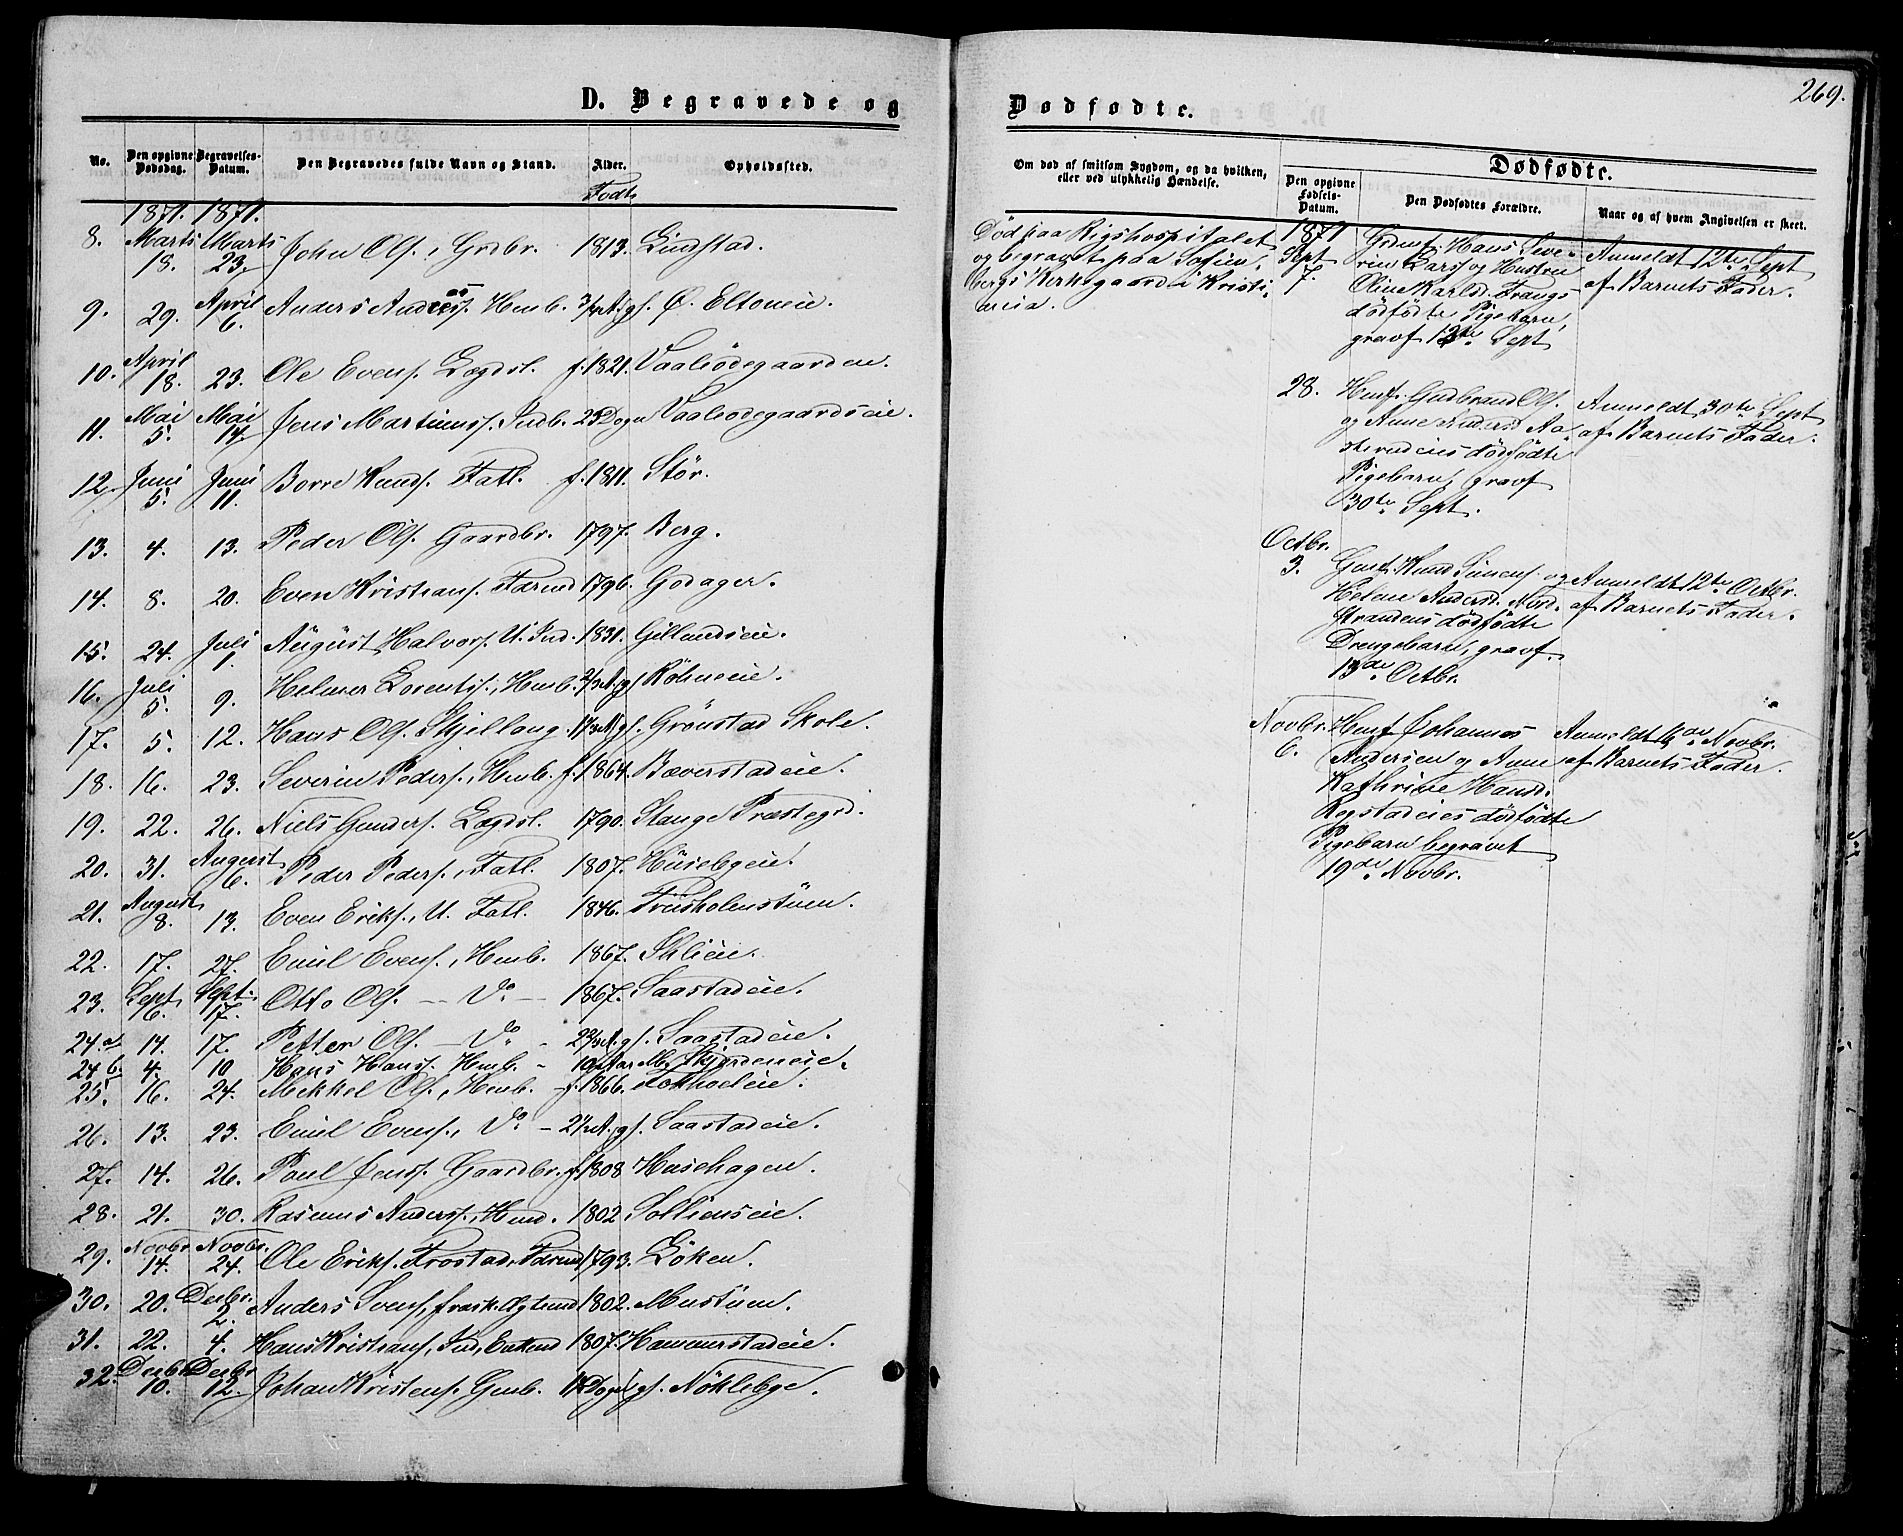 269.
D. Begravede og
Dødfødte.
No. Den opgivne Dødsdag. Begravelses-Datum. Den Begravedes fulde Navn og Stand. Alder. Opholdssted.
Født
1871. 1871.
8. Marts 18. Marts 23. John Ols., Grdbr. 1813. Lindstad.
9. 29. April 6. Anders Andreass. Hmb. 3/4 A. gl. Ø. Eltoneie.
10. April 18. 23. Ole Evens. Lægdsl. f. 1821. Vaaleødegaarden.
11. Mai 5. Mai 14. Jens Martinuss. Indb. 25 Dogn Vaaleødegaardseie.
12. Juni 5. Juni 11. Borre Knuds. Fatl. f. 1811. Stör.
13. 4. 13. Peder Ols. Gaardbr. 1797. Berg.
14. 8. 20. Even Kristians. Farmd 1796. Godager.
15. 24. Juli 1. August Halvors. U. Ind. 1831. Gillundseie.
16. Juli 5. 9. Helmer Lorents., Hmb. 2/3 A. gl. Röhneeie.
17. 5. 12. Hans Ols. Skjellang. gl. Grönstad Skole.
18. 16. 23. Severin Peders., Hmb. f. 1864. Bæverstadeie.
19. 22. 26. Niels Gunders. Lægdsl. 1790. Stange Præstegrd.
20. 31. August 6. Peder Peders., Fatl. 1807. Hüsebyeie.
21. August 8. 13. Even Eriks., U. Fatl. 1846. Früskolenstüen.
22. 17. 27. Emil Evens., Hmb. 1867. Sklieie.
23. Sept 6. Sept. 17. Otto Ols. — Do — 1867. Saastadeie.
24.a 14. 17. Petter Ols. — Do - A. gl. Saastadeie.
24 b. 4. 10 Hans Hanss. Hmb. - Skjerdeneie.
25. 16. 24. Mekkel Ols., Hmb. - f. 1866. Fokholeie.
26. 13. 23. Emil Evens., Do - A. gl. Saastadeie.
27. 14. 26. Paul Jenss. Gaardbr. f. 1808 Husehagen.
28. 21. 30. Rasmus Anderss., Hmd. 1802 Sollienseie.
29. Novbr 14. Novbr. 24. Ole Eriks. Frostad, Farmd 1793. Löken.
30. 20. Decbr. 2. Anders Svens., frask. Ægtmd 1802. Mustüen.
31. 22. 4. Hans Kristians., Ind., Enkmd 1807. Hammerstadeie.
32. Decbr 10. Decbr 12. Johan Kristens. Gmb. Dogn gl. Nöklebye.
Om død af smitsom Sygdom, og da hvilken,
eller ved ulykkelig Hændelse.
Dødfødte.
Den opgivne Fødsels-Datum. Den Dødfødtes Forældre. Naar og af hvem Angivelsen er skeet.
Död paa Rigshospitalet
og begravet paa Sofien-
bergs Kirkegaard i Kristi-
ania.
1871
Sept
7.
Grdmf. Hans Seve-
rin Larss. og Hustru
Oline Karlsd. Frangs-
dödfödte Pigebarn,
gravf 12te Sept
Anmeldt 12te Sept
af Barnets Fader.
28.
Husf. Gudbrand Ols.
og Anne Andersd. Aa-
sterudeies dödfödte
Pigebarn, gravf
30te Sept.
Anmeldt 30te Sept
af Barnets Fader.
Octbr.
3.
Knud Simens. og
Helene Andersd. Nord-
strandens dödfödte
Drengebarn, gravf.
13de Octbr.
Anmeldt 12te Octbr.
af Barnets Fader.
Novbr.
6.
Husf Johannes
Andersen og Anne
Kathrine Hansd.
Rogstadeies dödfödte
Pigebarn begravet
19de Novbr.
Anmeldt Novbr.
af Barnets Fader.